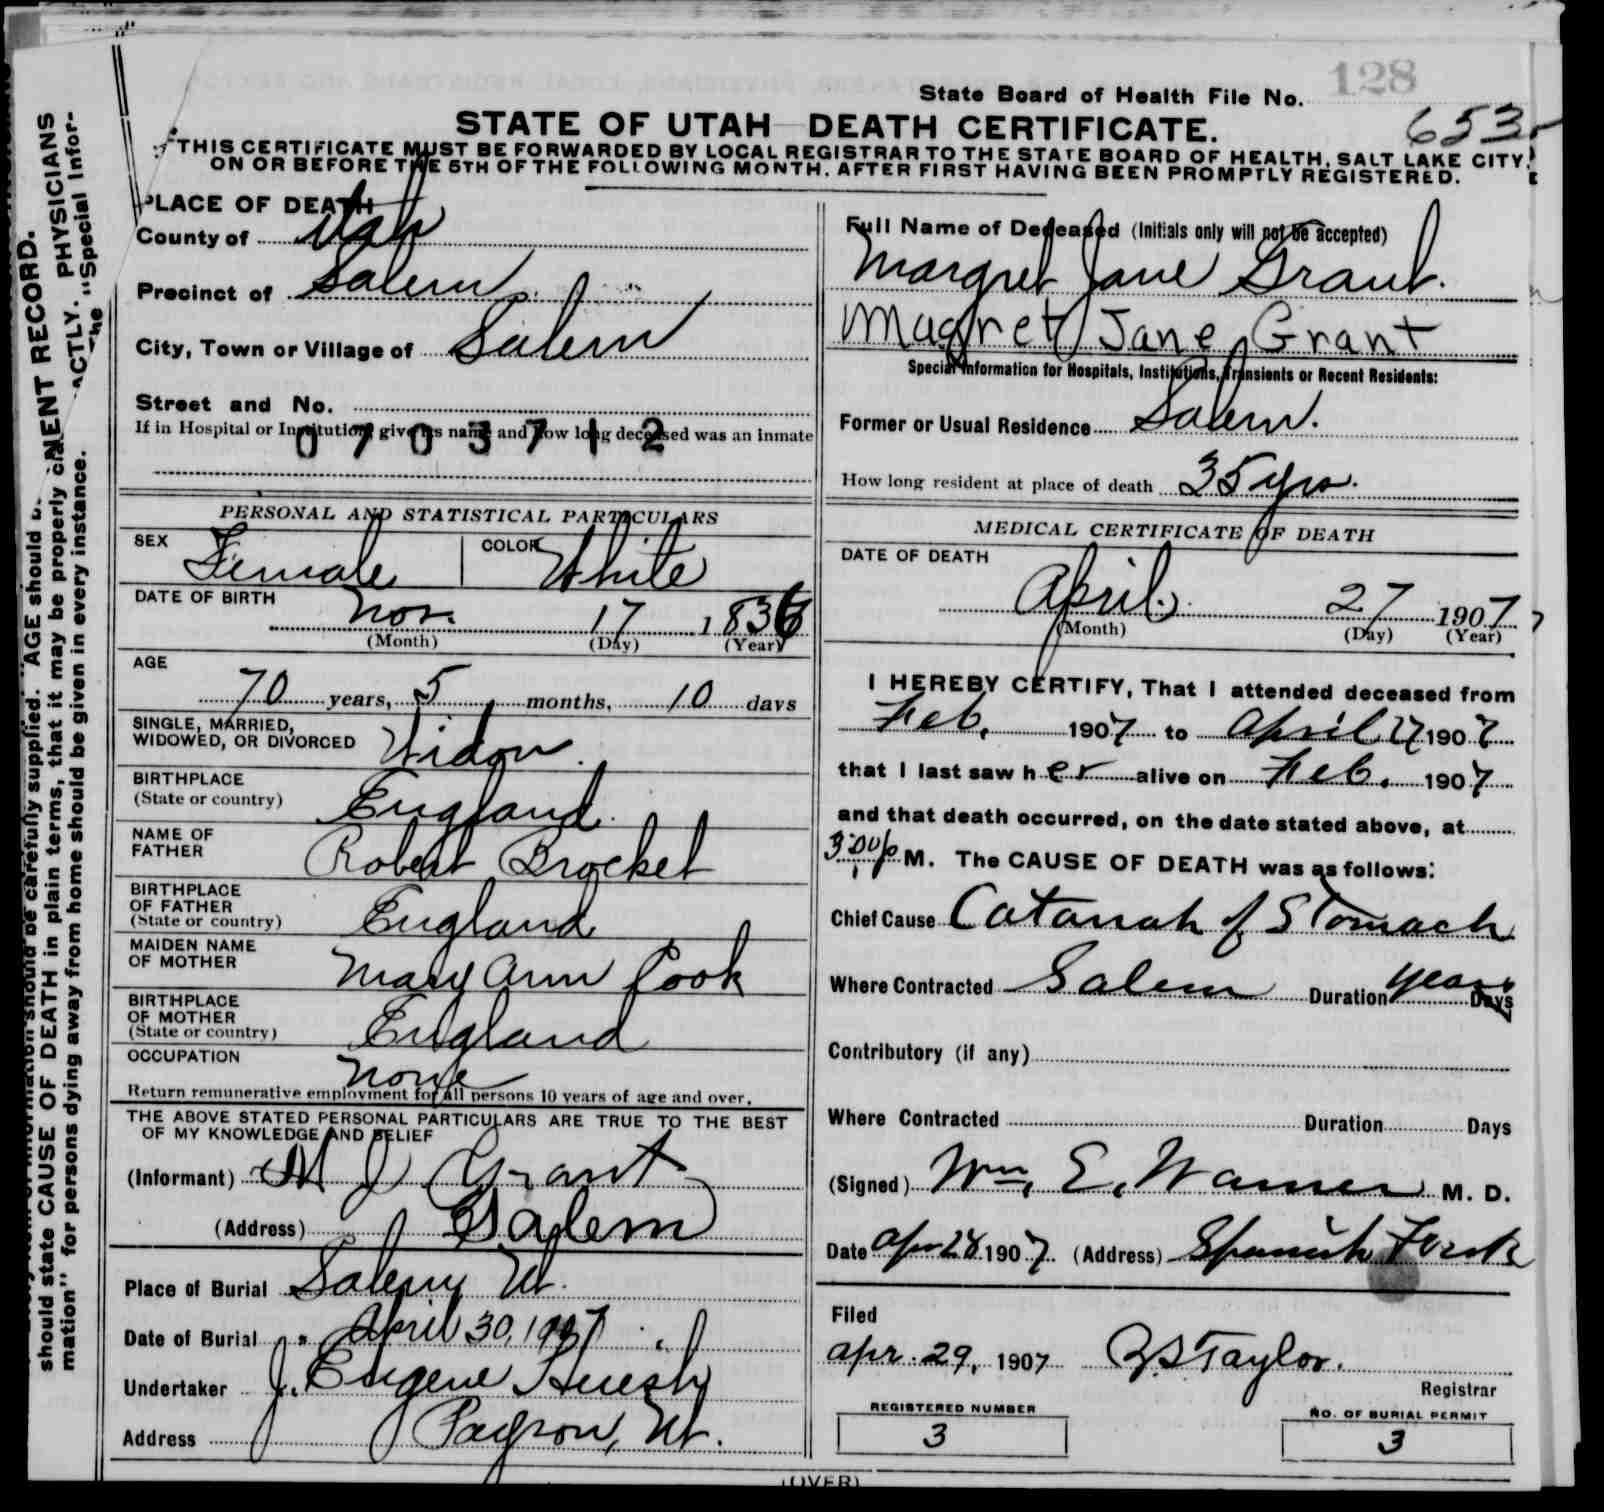 128
State Board of Health File No.
653
STATE OF UTAH—DEATH CERTIFICATE.
THIS CERTIFICATE MUST BE FORWARDED BY LOCAL REGISTRAR TO THE STATE BOARD OF HEALTH, SALT LAKE CITY,
ON OR BEFORE THE 5TH OF THE FOLLOWING MONTH, AFTER FIRST HAVING BEEN PROMPTLY REGISTERED.
NENT RECORD.
should be carefully supplied. AGE should
ACTLY. PHYSICIANS
should state CAUSE OF DEATH in plain terms, that it may be properly
"Special Infor-
mation" for persons dying away from home should be given in every instance.
PLACE OF DEATH
County of Utah
Precinct of Salem
City, Town or Village of Salem
Street and No.
If in Hospital or Institution, give its name and how long deceased was an inmate
0703712
PERSONAL AND STATISTICAL PARTICULARS
SEX Female COLOR White
DATE OF BIRTH
Nov. 17 1836
(Month) (Day) (Year)
AGE
70 years, 5 months, 10 days
SINGLE, MARRIED,
WIDOWED, OR DIVORCED Widow.
BIRTHPLACE
(State or country) England.
NAME OF
FATHER Robert Brocket
BIRTHPLACE
OF FATHER
(State or country) England
MAIDEN NAME
OF MOTHER Mary Ann Cook
BIRTHPLACE
OF MOTHER
(State or country) England
OCCUPATION
None
Return remunerative employment for all persons 10 years of age and over.
THE ABOVE STATED PERSONAL PARTICULARS ARE TRUE TO THE BEST
OF MY KNOWLEDGE AND BELIEF
(Informant) M J Grant
(Address) Salem
Place of Burial Salem Ut.
Date of Burial April 30, 1907
Undertaker J. Eugene Huish
Address Payson, Ut.
Full Name of Deceased (Initials only will not be accepted)
Margret Jane Grant.
Magret Jane Grant
Special Information for Hospitals, Institutions, Transients or Recent Residents:
Former or Usual Residence Salem.
How long resident at place of death 35 yrs.
MEDICAL CERTIFICATE OF DEATH
DATE OF DEATH
April 27 1907
(Month) (Day) (Year)
I HEREBY CERTIFY, That I attended deceased from
Feb. 1907 to April 27 1907
that I last saw her alive on Feb. 1907
and that death occurred, on the date stated above, at
3:00 p M. The CAUSE OF DEATH was as follows:
Chief Cause Catarrah of Stomach
Where Contracted Salem Duration years Days
Contributory (if any)
Where Contracted Duration Days
(Signed) Wm. E. Warner M. D.
Date Apr 28 1907 (Address) Spanish Fork
Filed
Apr. 29, 1907 Taylor.
Registrar
REGISTERED NUMBER
3
NO. OF BURIAL PERMIT
3
(OVER)